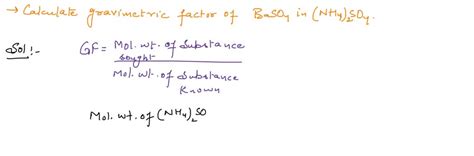 → Calculate gravimetric factor of BaSO₄ in (NH₄)₂SO₄.
Sol:-
GF = Mol. wt. of Substance
sought
Mol. wt. of Substance
known
Mol. wt. of (NH₄)₂SO